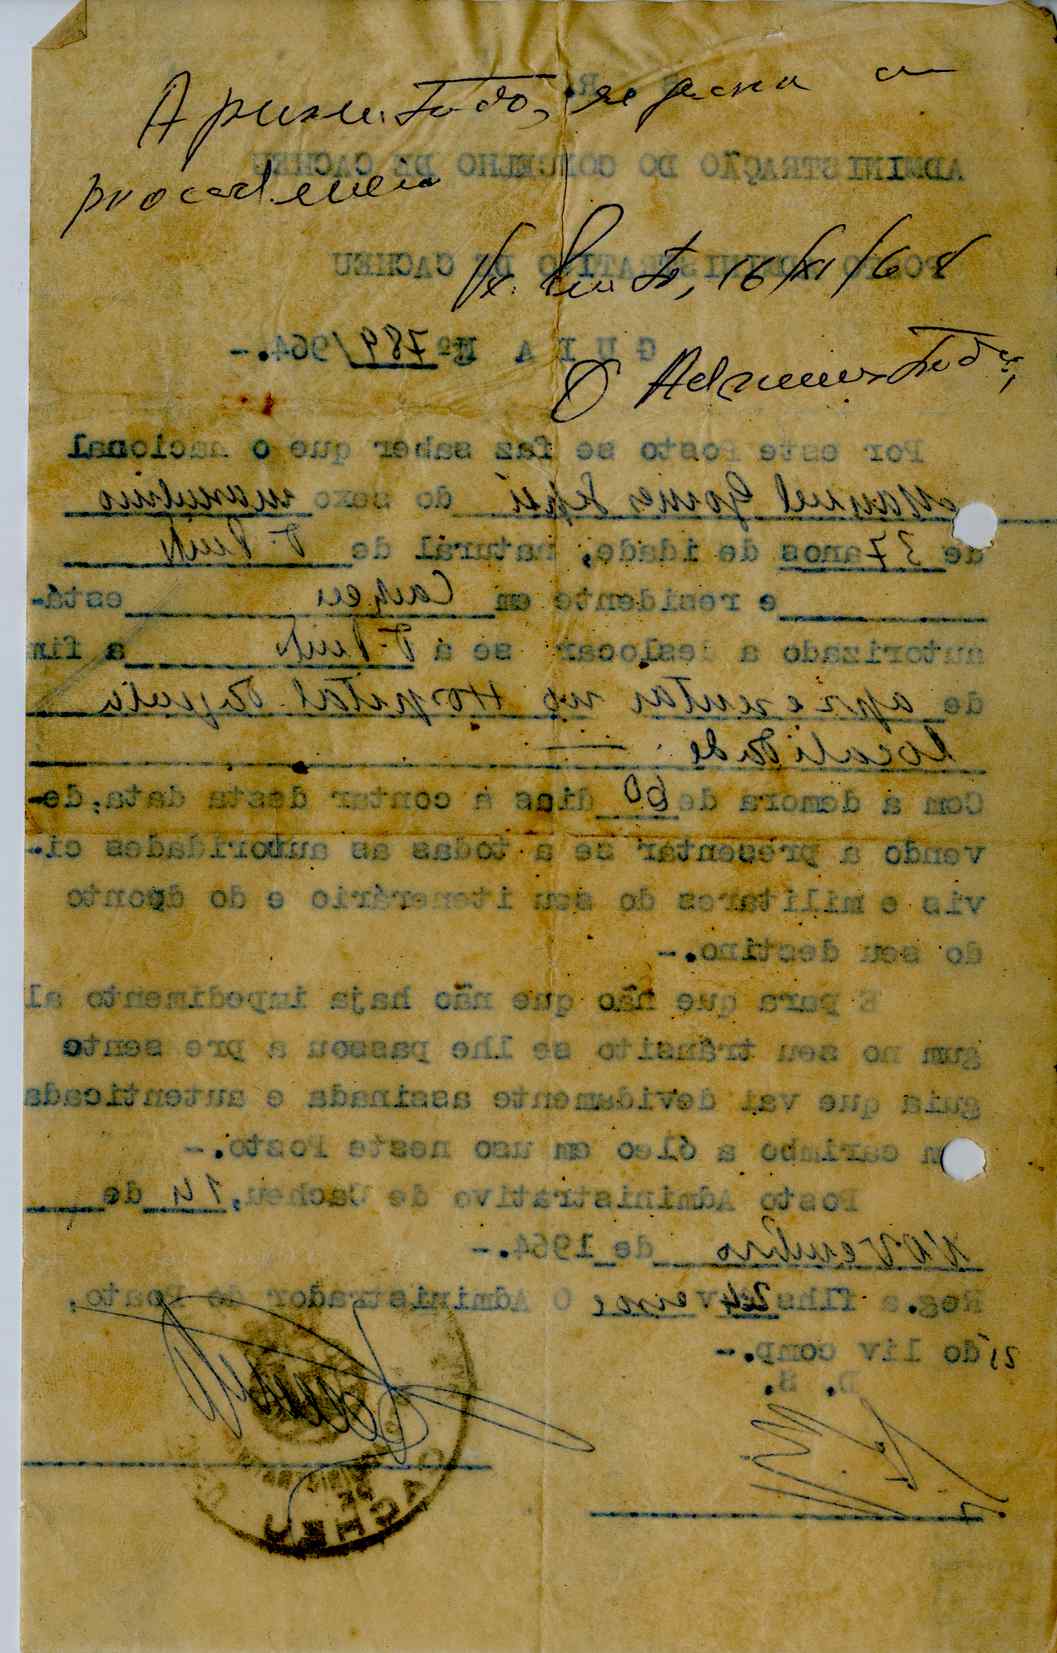 Apresentado, regressa a
procedencia
R.
ADMINISTRAÇÃO DO CONCELHO DE CACHEU
POSTO ADMINISTRATIVO DE CACHEU
16/XI/64
G U I A Nº 789/964.-
O Administrador,
Por este Posto se faz saber que o nacional
Manuel Gomes do sexo masculino
de 37 anos de idade, natural de T. Pinto
e residente em Cacheu está-
autorizado a deslocar se á T. Pinto a fim
de apresentar no Hospital daquela
localidade
Com a demora de 60 dias a contar desta data, de-
vendo a presentar se a todas as autoridades ci-
vis e militares do seu itenerário e do dponto
do seu destino.-
E para que não que não haja impedimento al
gum no seu trânsito se lhe passou a pre sente
guia que vai devidamente assinada e autenticada
m carimbo a óleo em uso neste Posto.-
Posto Administrativo de Cacheu, 14 de
Novembro de 1964.-
Reg.a flhs 24 verso O Administrador do Posto,
do liv comp.-
CACHEU